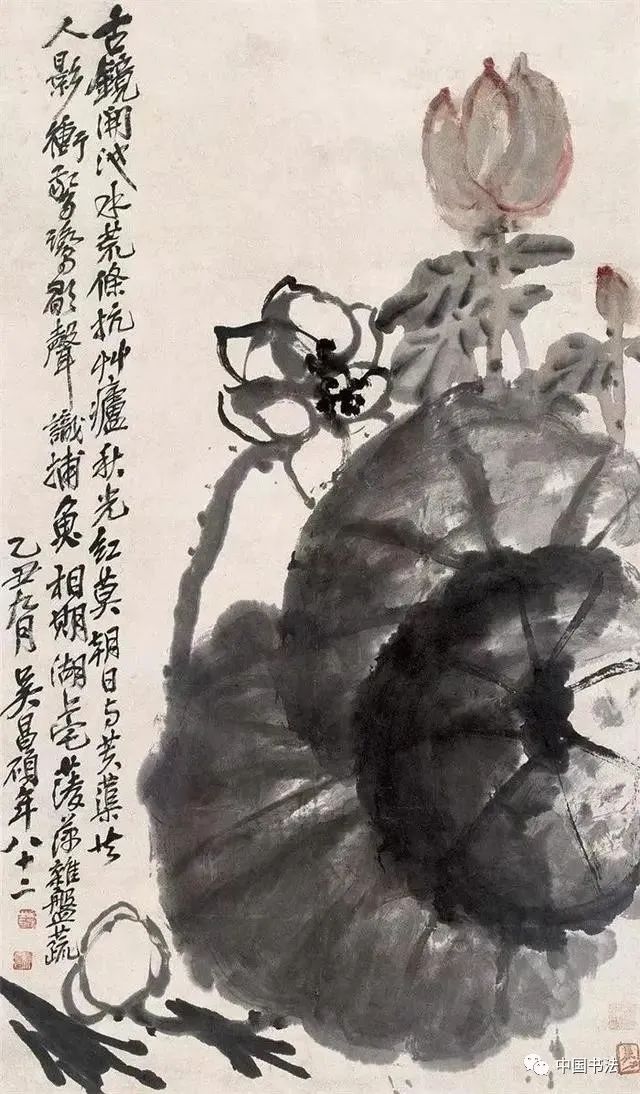 古鏡開池水荒條抗艸廬秋光紅莫朝日与芙蕖
人影衝驚鷺歌聲識捕魚相期湖上宅菱藻雜盤蔬
乙丑九月吳昌碩年八十二
中国书法